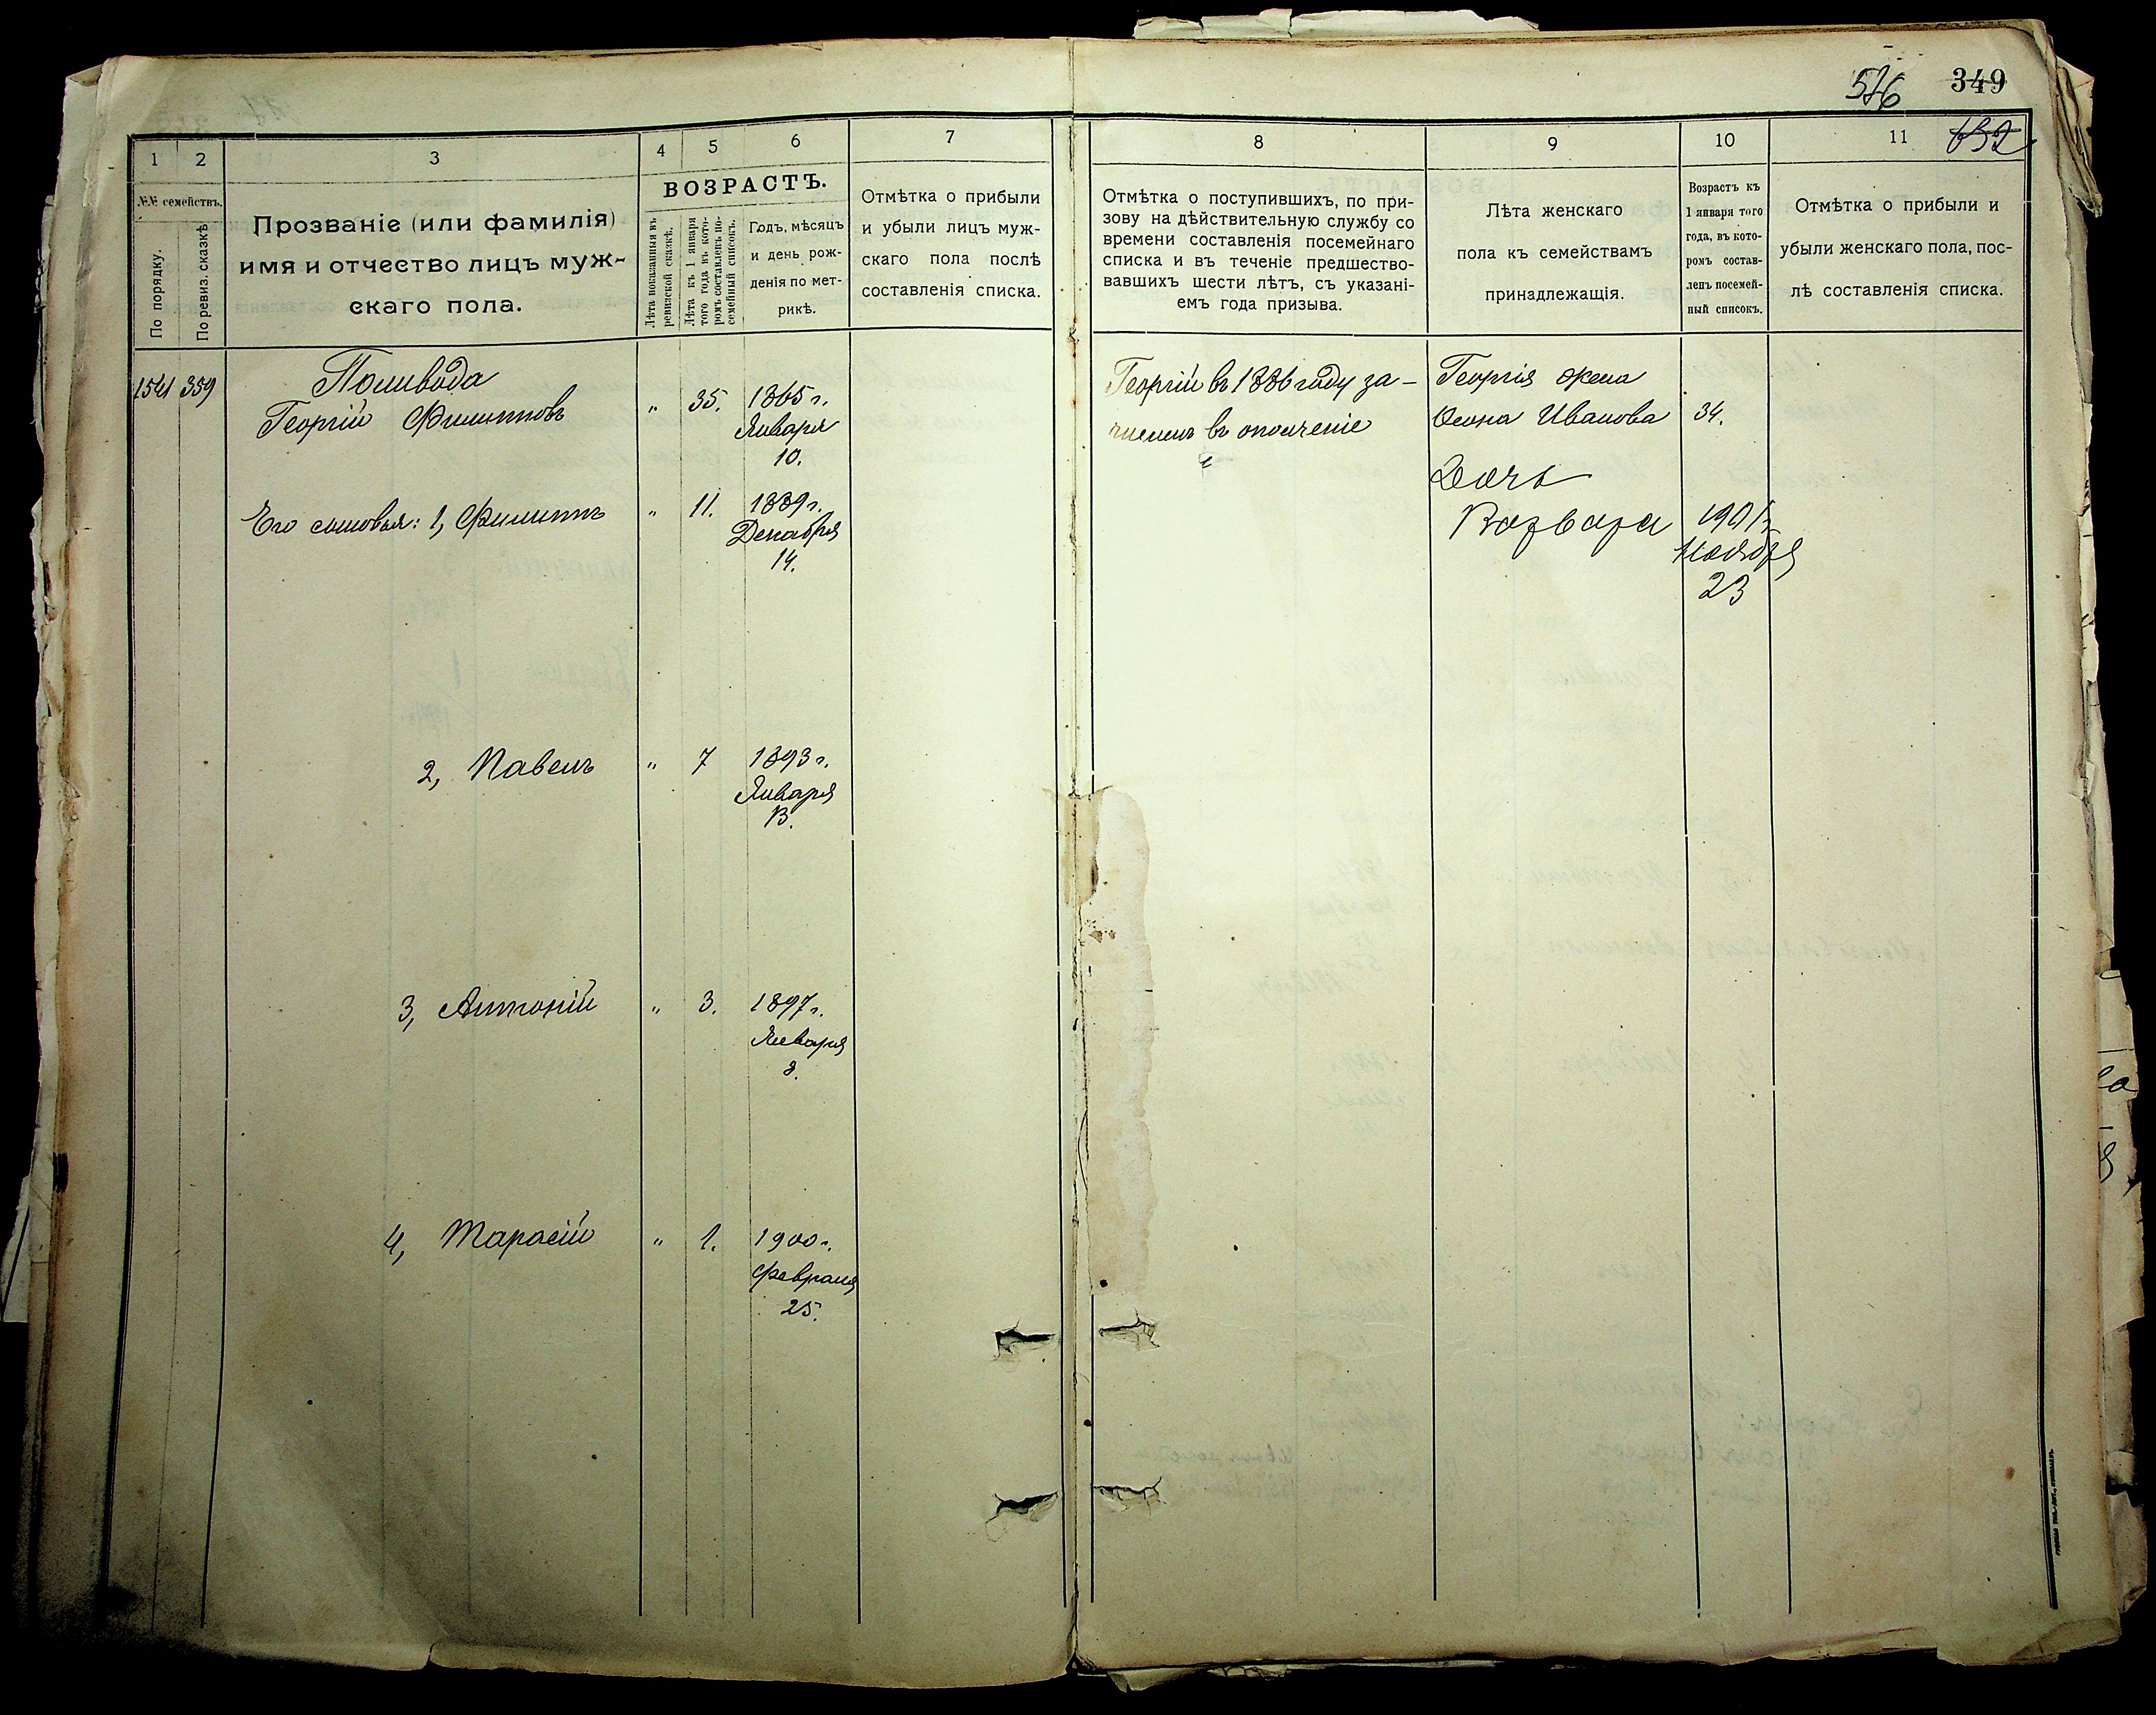 576 349
632
1 2 3 4 5 6 7 8 9 10 11
№№ семействъ.
По порядку.
По ревиз. сказкѣ
Прозваніе (или фамилія)
имя и отчество лицъ муж-
скаго пола.
ВОЗРАСТЪ.
Лѣта показанныя въ
ревизской сказкѣ.
Лѣта къ 1 января
того года въ кото-
ромъ составленъ по-
семейный списокъ.
Годъ, мѣсяцъ
и день рож-
денія по мет-
рикѣ.
Отмѣтка о прибыли
и убыли лицъ муж-
скаго пола послѣ
составленія списка.
Отмѣтка о поступившихъ, по при-
зову на дѣйствительную службу со
времени составленія посемейнаго
списка и въ теченіе предшество-
вавшихъ шести лѣтъ, съ указані-
емъ года призыва.
Лѣта женскаго
пола къ семействамъ
принадлежащія.
Возрастъ къ
1 января того
года, въ кото-
ромъ состав-
ленъ посемей-
ный списокъ.
Отмѣтка о прибыли и
убыли женскаго пола, пос-
лѣ составленія списка.
1541 359 Поливода
Георгій Филипповъ " 35. 1865 г.
Января
10.
Его сыновья: 1, Филиппъ " 11. 1889 г.
Декабря
14.
2, Павелъ " 7 1893 г.
Января
13.
3, Антоній " 3. 1897 г.
Января
8.
4, Тарасій " 1. 1900 г.
Февраля
25.
Георгій въ 1886 году за-
численъ въ ополченіе
Георгія жена
Ивановa 34.
Дочь
Варвара 1901 г
Ноября
23